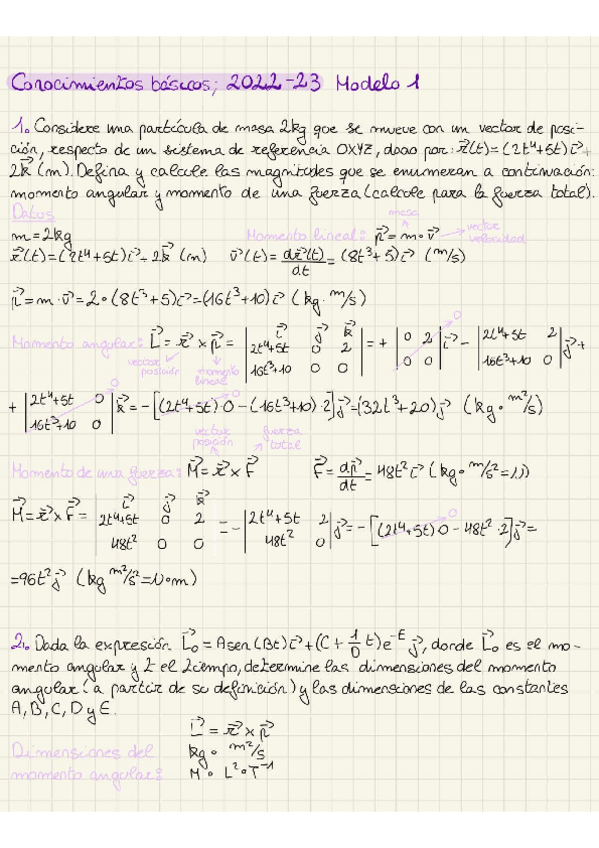 Conocimientos básicos; 2022-23 Modelo 1
1. Considere una partícula de masa 2kg que se mueve con un vector de posi-
ción, respecto de un sistema de referencia OXYZ, dado por: r⃗(t)=(2t⁴+5t)i⃗+
2k⃗ (m). Defina y calcule las magnitudes que se enumeran a continuación:
momento angular y momento de una fuerza (calcule para la fuerza total).
Datos
masa
m=2kg Momento lineal: p⃗=m·v⃗ vector velocidad
r⃗(t)=(2t⁴+5t)i⃗+2k⃗ (m) v⃗(t)=dr⃗(t)/dt=(8t³+5)i⃗ (m/s)
p⃗=m·v⃗=2·(8t³+5)i⃗=(16t³+10)i⃗ (kg·m/s)
Momento angular: L⃗=r⃗×p⃗= |i⃗ j⃗ k⃗; 2t⁴+5t 0 2; 16t³+10 0 0| =+ |0 2; 0 0| i⃗ − |2t⁴+5t 2; 16t³+10 0| j⃗+
vector posición momento lineal
+ |2t⁴+5t 0; 16t³+10 0| k⃗=−[(2t⁴+5t)·0−(16t³+10)·2]j⃗=(32t³+20)j⃗ (kg·m²/s)
vector posición fuerza total
Momento de una fuerza: M⃗=r⃗×F⃗ F⃗=dp⃗/dt=48t²i⃗ (kg·m/s²=N)
M⃗=r⃗×F⃗= |i⃗ j⃗ k⃗; 2t⁴+5t 0 2; 48t² 0 0| =− |2t⁴+5t 2; 48t² 0| j⃗=−[(2t⁴+5t)·0−48t²·2]j⃗=
=96t²j⃗ (kg m²/s²=N·m)
2. Dada la expresión L⃗₀=Asen(Bt)i⃗+(C+1/D t)e⁻ᴱ j⃗, donde L⃗₀ es el mo-
mento angular y t el tiempo, determine las dimensiones del momento
angular (a partir de su definición) y las dimensiones de las constantes
A, B, C, D y E.
L⃗=r⃗×p⃗
Dimensiones del kg·m²/s
momento angular: M·L²·T⁻¹